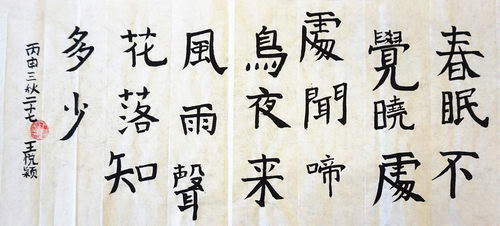 春眠不
覺曉處
處聞啼
鳥夜来
風雨聲
花落知
多少
丙申三秋二十七 王悦颖